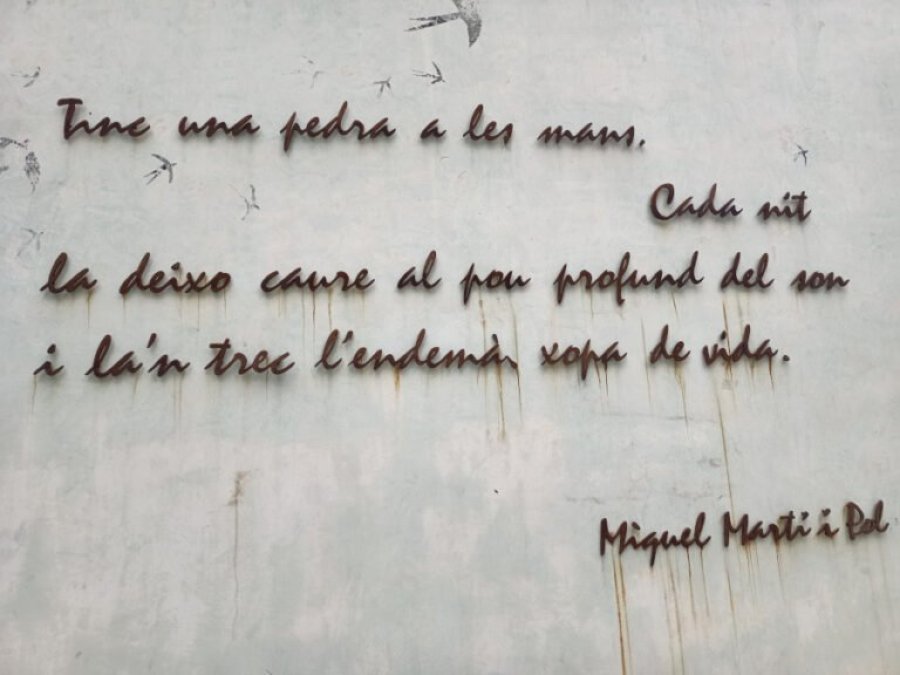 Tinc una pedra a les mans.
Cada nit
la deixo caure al pou profund del son
i la'n trec l'endemà, xopa de vida.
Miquel Martí i Pol